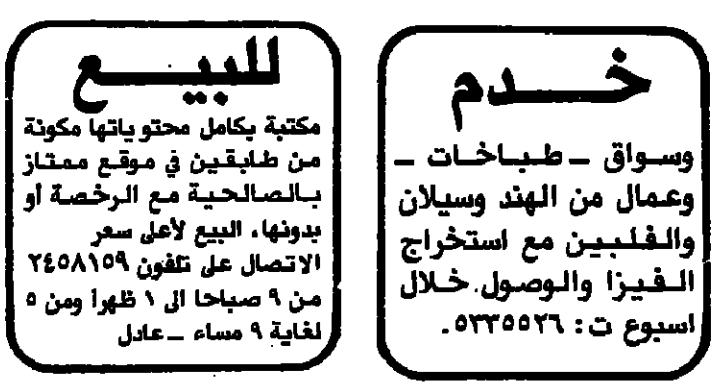 خدم
وسواق ـ طباخات ـ
وعمال من الهند وسيلان
والفلبين مع استخراج
الفيزا والوصول خلال
اسبوع ت: ٥٣٣٥٥٢٦.
للبيع
مكتبة بكامل محتوياتها مكونة
من طابقين في موقع ممتاز
بالصالحية مع الرخصة أو
بدونها، البيع لأعلى سعر
الاتصال على تلفون ٢٤٥٨١٥٩
من ٩ صباحا الى ١ ظهرا ومن ٥
لغاية ٩ مساء ـ عادل